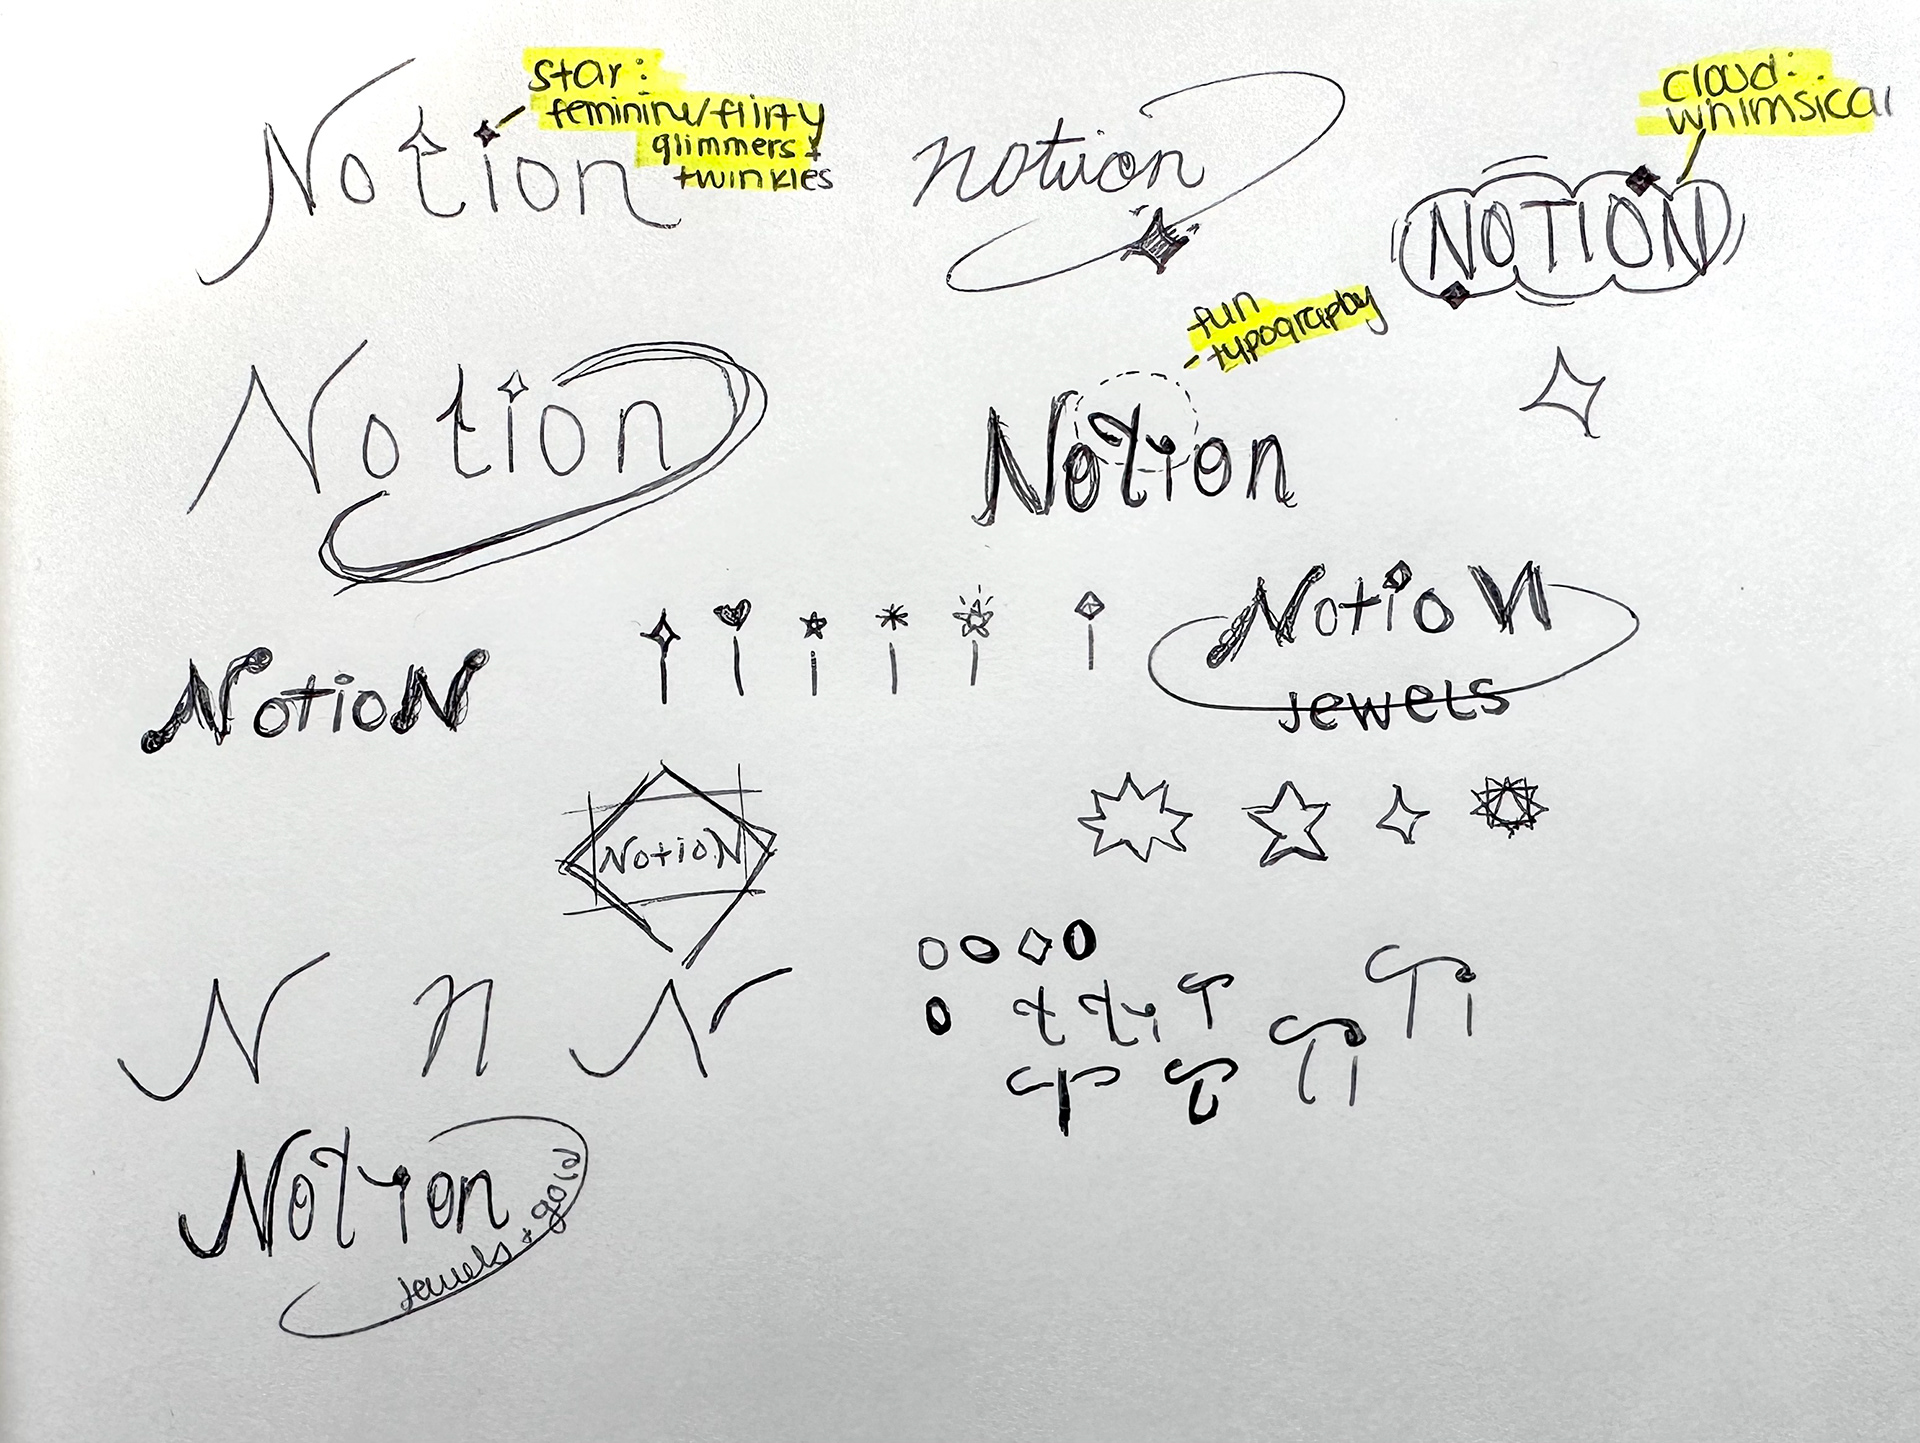 star:
feminine/flirty
glimmers +
twinkles
Notion
notion
cloud:
whimsical
NOTION
fun
typography
Notion
Notion
NotioN
NotioN
jewels
NotioN
N n N
t ti T
T T Ti Ti
Notion
jewels + gold